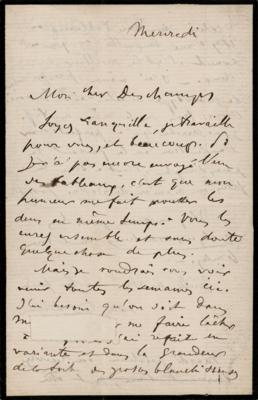 Mercredi
Mon cher Deschamps
Soyez tranquille, je travaille
pour vous, et beaucoup. Si
je n'ai pas encore envoyé l'un
des tableaux, c'est que mon
humeur me fait mettre les
deux en même temps. Vous les
aurez ensemble et sans doute
quelque chose de plus.
Mais je voudrais vous voir
venir toutes les semaines ici.
J'ai besoin qu'on soit dans
me faire lâch
j'ai refait en
variante et dans la grandeur
de la toile des grosses blanchisseuses